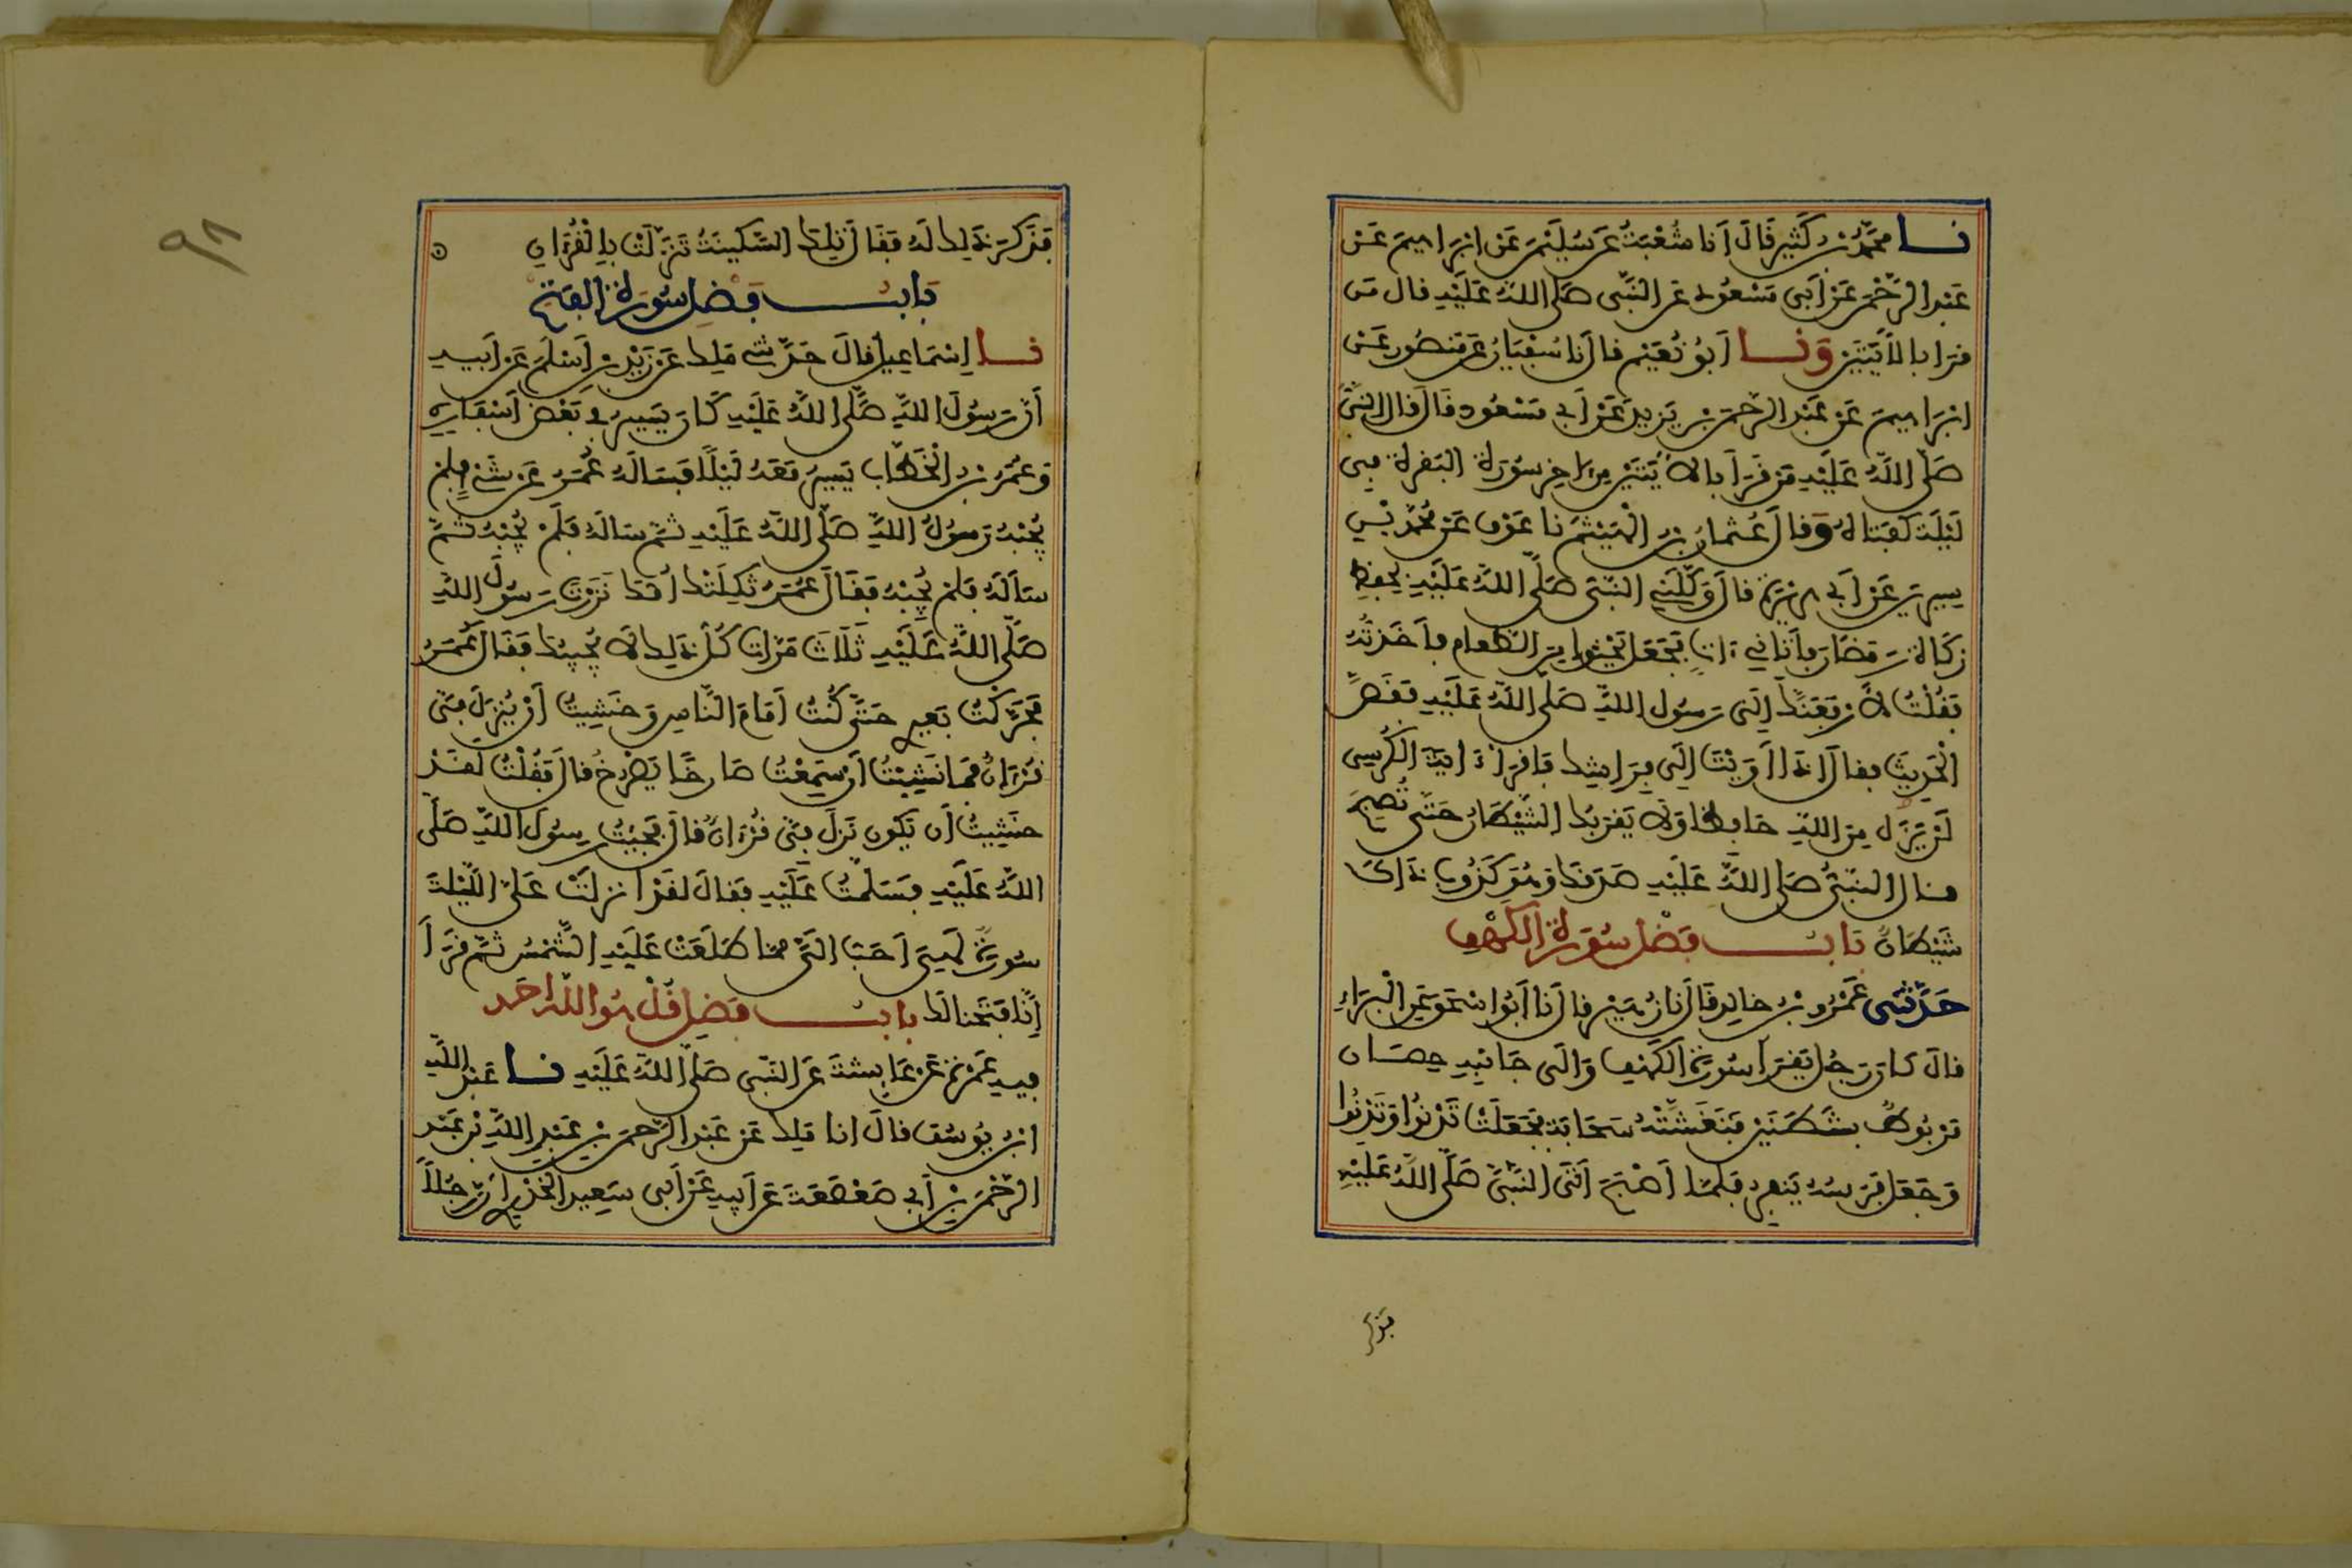 نا محمد بن كثير قال أنا شعبة عن سليمن عن ابراهيم عن
عبد الرحمن عن أبي مسعود عن النبي صلى الله عليه قال من
قرا بالأيتين ونا أبو نعيم قال نا سفيان عن منصور عن
ابراهيم عن عبد الرحمن بن يزيد عن أبي مسعود قال قال النبي
صلى الله عليه من قرأ بالايتين من اخر سورة البقرة في
ليلة كفتاه وقال عثمان بن الهيثم نا عوف عن محمد بن
سيرين عن أبي هريرة قال وكلني النبي صلى الله عليه بحفظ
زكاة رمضان فأتاني ءات فجعل يحثوا من الطعام فأخذته
فقلت لأرفعنك إلى رسول الله صلى الله عليه فقص
الحديث فقال إذا أويت إلى فراشك فاقرأ ءاية الكرسي
لن يزل من الله حافظ ولا يقربك الشيطان حتى تصبح
فقال النبي صلى الله عليه صدقك وهو كذوب ذاك
شيطان باب فضل سورة الكهف
حدثني عمرو بن خالد قال نا زهير قال نا أبوا سحق عن البراء
قال كان رجل يقرأ سورة الكهف وإلى جانبه حصان
مربوط بشطنين فتغشته سحابة فجعلت تدنوا وتدنوا
وجعل فرسه ينفر فلما أصبح أتى النبي صلى الله عليه
فذكر
٩٨
فذكر ذلك له فقال تلك السكينة تنزلت بالقرءان
باب فضل سورة الفتح
نا إسماعيل قال حدثني ملك عن زيد بن أسلم عن أبيه
أن رسول الله صلى الله عليه كان يسير في بعض أسفاره
وعمر بن الخطاب يسير معه ليلا فساله عمر عن شيء فلم
يجبه رسول الله صلى الله عليه ثم ساله فلم يجبه ثم
سأله فلم يجبه فقال عمر ثكلتك أمك نزرت رسول الله
صلى الله عليه ثلاث مرات كل ذلك لا يجيبك فقال عمر
فحركت بعيري حتى كنت أمام الناس وخشيت أن ينزل في
قرءان فما نشبت أن سمعت صارخا يصرخ قال فقلت لقد
خشيت أن يكون نزل في قرءان قال فجئت رسول الله صلى
الله عليه فسلمت عليه فقال لقد أنزلت علي الليلة
سورة لهي أحب إلي مما طلعت عليه الشمس ثم قرأ
إنا فتحنا لك باب فضل قل هو الله احد
فيه عمرة عن عائشة عن النبي صلى الله عليه نا عبد الله
ابن يوسف قال انا ملك عن عبد الرحمن بن عبد الله بن عبد
الرحمن بن أبي صعصعة عن أبيه عن أبي سعيد الخدري أن رجلا